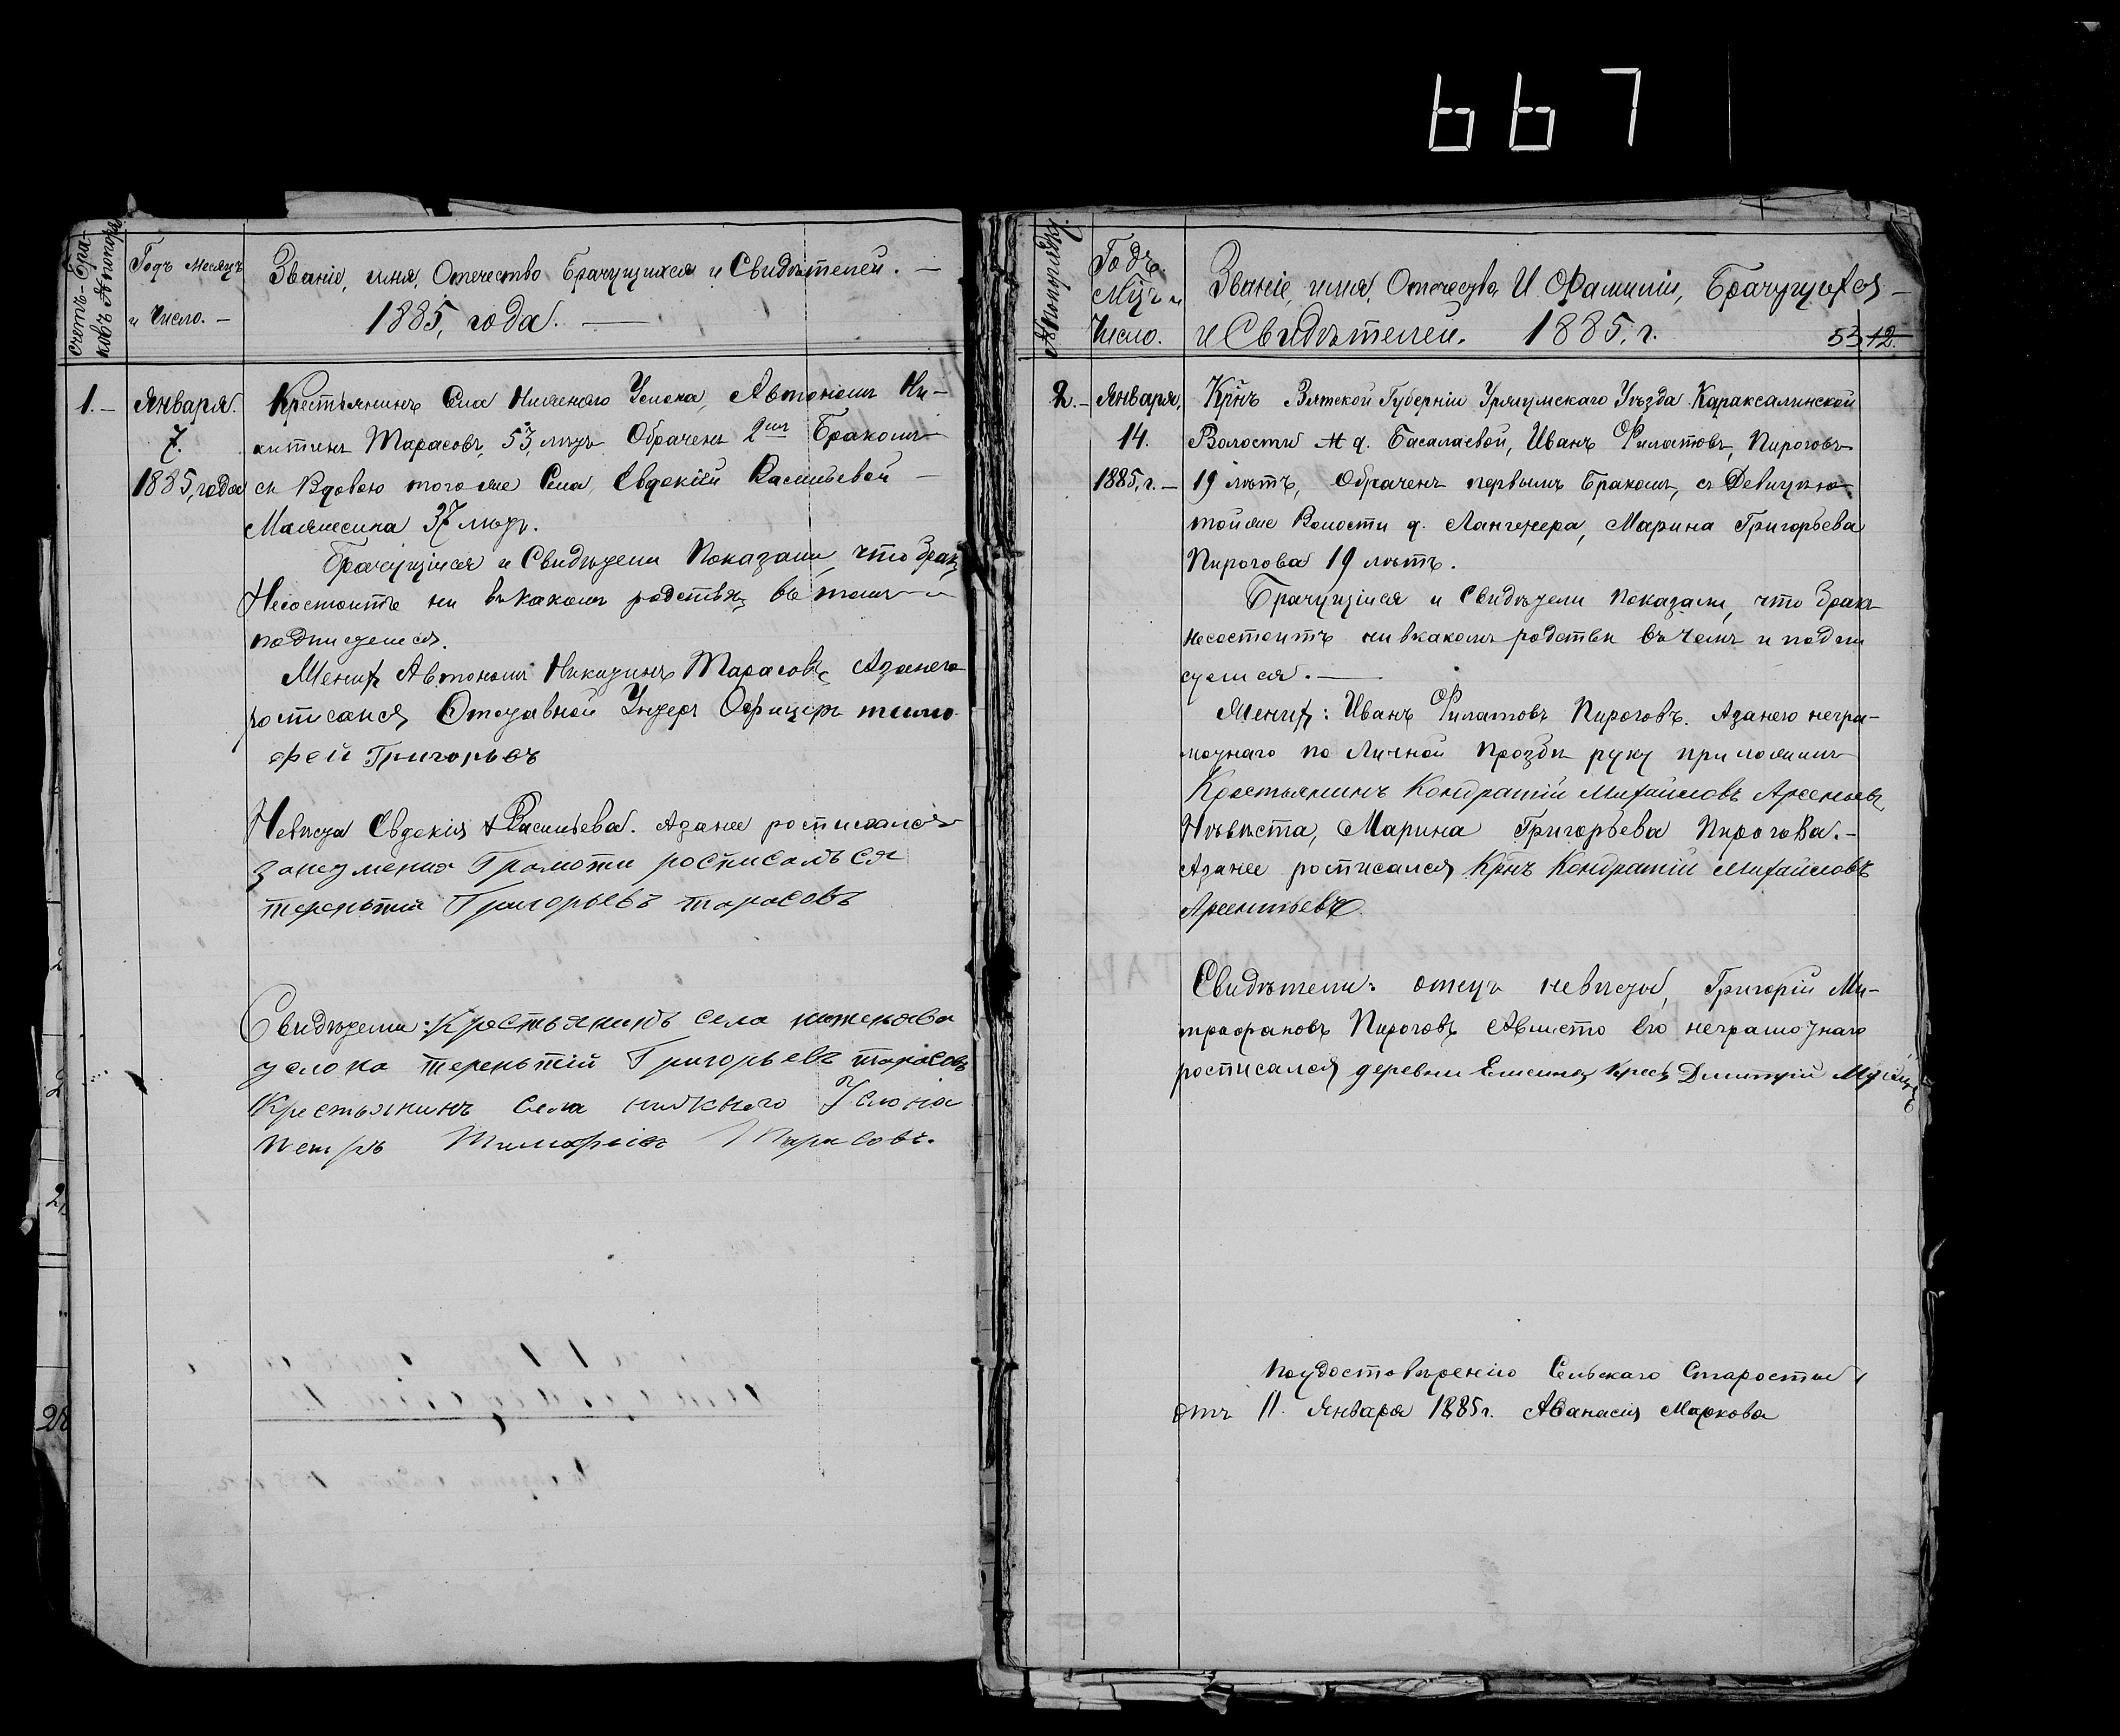 667
счетъ-бра-
ковъ № попоря.
Годъ Месяцъ
и Число. —
Званіе, имя, Отечество Брачущихся и Свидѣтелей. —
1885, года. —
1. —
Января.
7.
1885, года
Крестьянинъ Села Нижнаго Услона, Автономъ Ни-
китинъ Тарасовъ, 53, лѣтъ Обраченъ 2мъ Бракомъ
съ Вдовою тогоже Села, Евдокіей Васильевой —
37 лѣтъ.
Брачущіися и Свидѣтели Показали, что бракъ
Несостоитъ ни въ какомъ родствѣ, въ томъ и
подписуемся.
Жених Автономъ Никитинъ Тарасовъ, Азанего
росписался, Отставной Унтеръ Офицеръ тимо
фей Григорьевъ
Невѣста Евдокія Васильева. Азанее росписался
занеумения Грамоти росписалъся
терентий Григорьевъ тарасовъ
Свидѣтели: Крестьянинъ села нижнява
услона терентій Григорьевъ тарасовъ
Крестьянинъ Села нижнего Услона
петръ Тимофѣевъ Тарасовъ.
№ попорядку.
Годъ.
Мѣц. и
Число.
Званіе, имя, Отечество И Фамиліи, Брачущихся —
и Свидѣтелей. 1885, г.
53 12.
2. —
Января,
14.
1885, г. —
Крнъ Вятской Губерніи Уржумскаго Уѣзда Караксалинской
Волости д. Басалаевой, Иванъ Филатовъ, Пироговъ
19 лѣтъ, Обраченъ первымъ Бракомъ, съ Девицею
тойже Волости д. Лангенера, Марина Григорьева
Пирогова 19 лѣтъ.
Брачущіися и Свидѣтели Показали, что бракъ
несостоитъ нивкакомъ родстве въ чемъ и подпи
суемся. —
Жених: Иванъ Филатовъ Пироговъ. Азанего негра-
мотнаго по Личной Прозбѣ руку приложилъ
Крестьянинъ Кондратій Михайловъ Арсеньевъ,
Нѣвѣста, Марина Григорьева Пирогова. —
Азанее росписался Крнъ Кондратій Михайловъ
Арсентьевъ.
Свидѣтели: отецъ невѣсты, Григорій Ми-
трофановъ Пироговъ Авместо его неграмотнаго
росписался деревни Дмитрій
Поудостовѣренію Сельскаго Старосты,
отъ 11. Января 1885 г. Аѳанасія Маркова